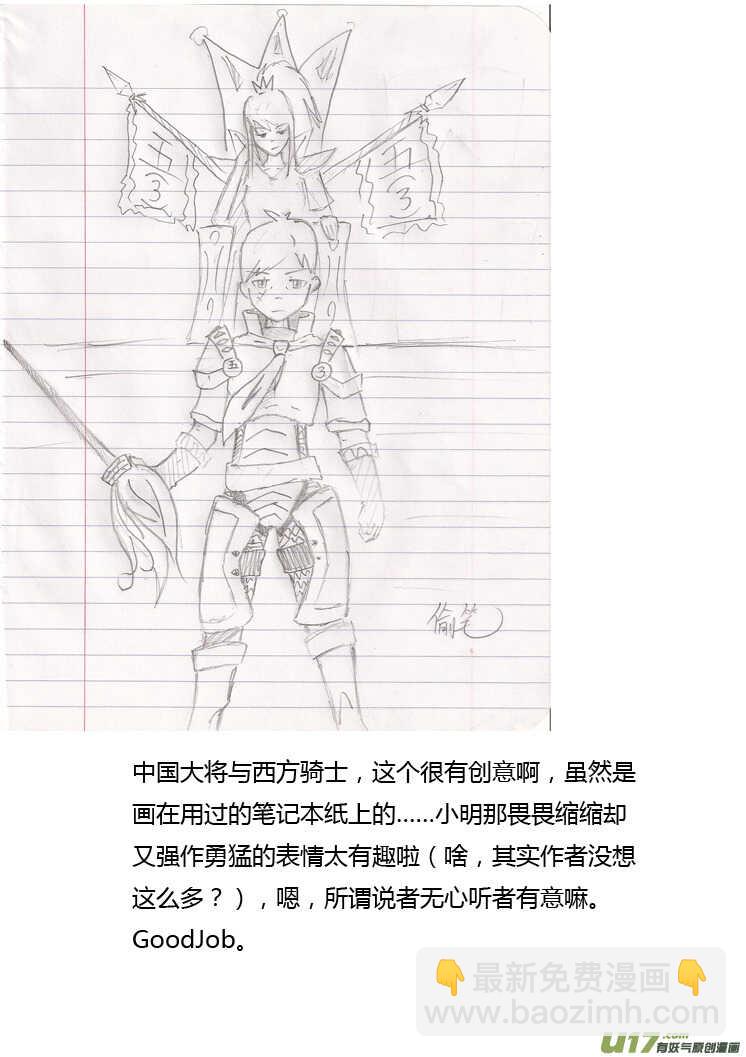 五
③
五
3
五
3
偷笔
中国大将与西方骑士，这个很有创意啊，虽然是
画在用过的笔记本纸上的……小明那畏畏缩缩却
又强作勇猛的表情太有趣啦（啥，其实作者没想
这么多？），嗯，所谓说者无心听者有意嘛。
GoodJob。
👇最新免费漫画👇
www.baozimh.com
U17.com
有妖气原创漫画